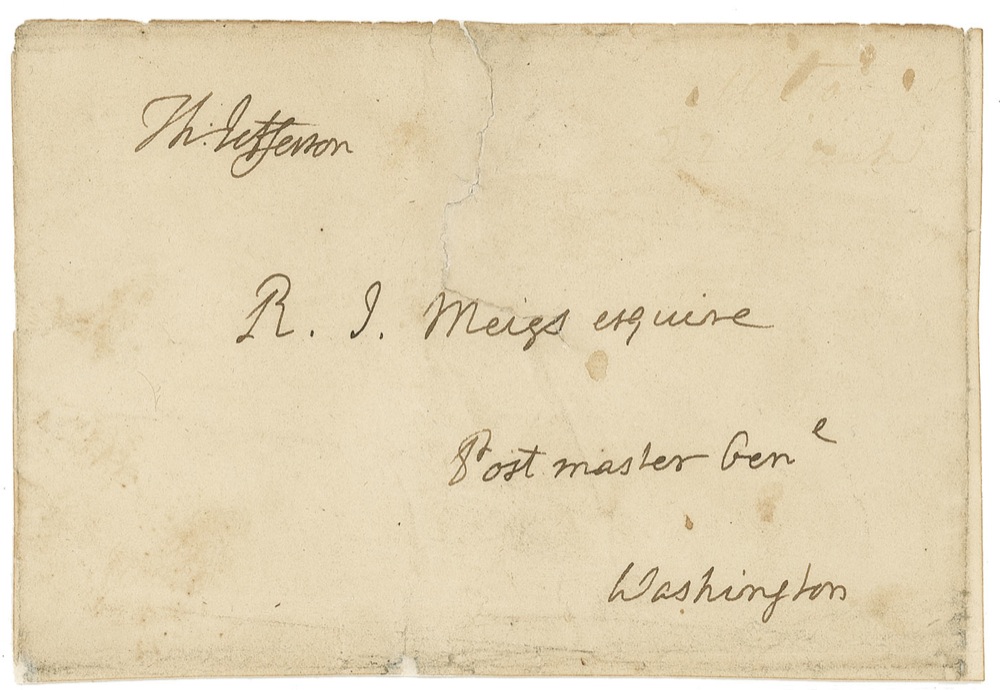 Th: Jefferson
R. J. Meigs esquire
Post master Genˡ
Washington